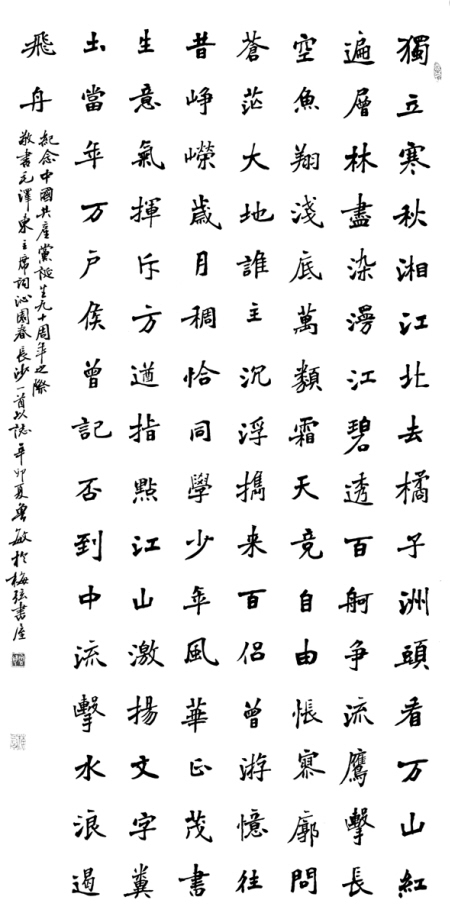 獨立寒秋湘江北去橘子洲頭看万山紅
遍層林盡染漫江碧透百舸争流鷹擊長
空魚翔淺底萬類霜天竞自由悵寥廓問
蒼茫大地誰主沉浮攜来百侣曾游憶往
昔峥嶸歲月稠恰同學少年風華正茂書
生意氣揮斥方遒指點江山激揚文字糞
土當年万户侯曾記否到中流擊水浪遏
飛舟
紀念中國共産黨誕生九十周年之際
敬書毛澤東主席詞沁園春長沙一首以誌辛卯夏魯敏於梅弦書屋